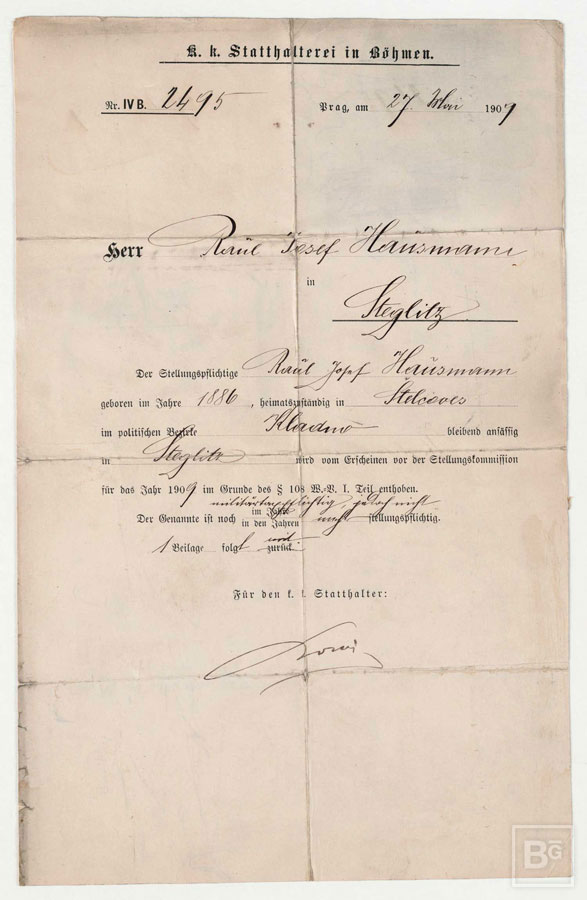 K. k. Statthalterei in Böhmen.
Nr. IV B. 2495
Prag, am 27. Mai 1909
Herr Raúl Josef Hausmann
in
Steglitz
Der Stellungspflichtige Raúl Josef Hausmann
geboren im Jahre 1886, heimatszuständig in Stelcoves
im politischen Bezirke Kladno bleibend ansässig
in Steglitz wird vom Erscheinen vor der Stellungskommission
für das Jahr 1909 im Grunde des § 108 W.-V. I. Teil enthoben.
militärtaxpflichtig, jedoch nicht
im Jahre
Der Genannte ist noch in den Jahren mehr stellungspflichtig.
1 Beilage folgt mit zurück.
Für den k. k. Statthalter:
BG